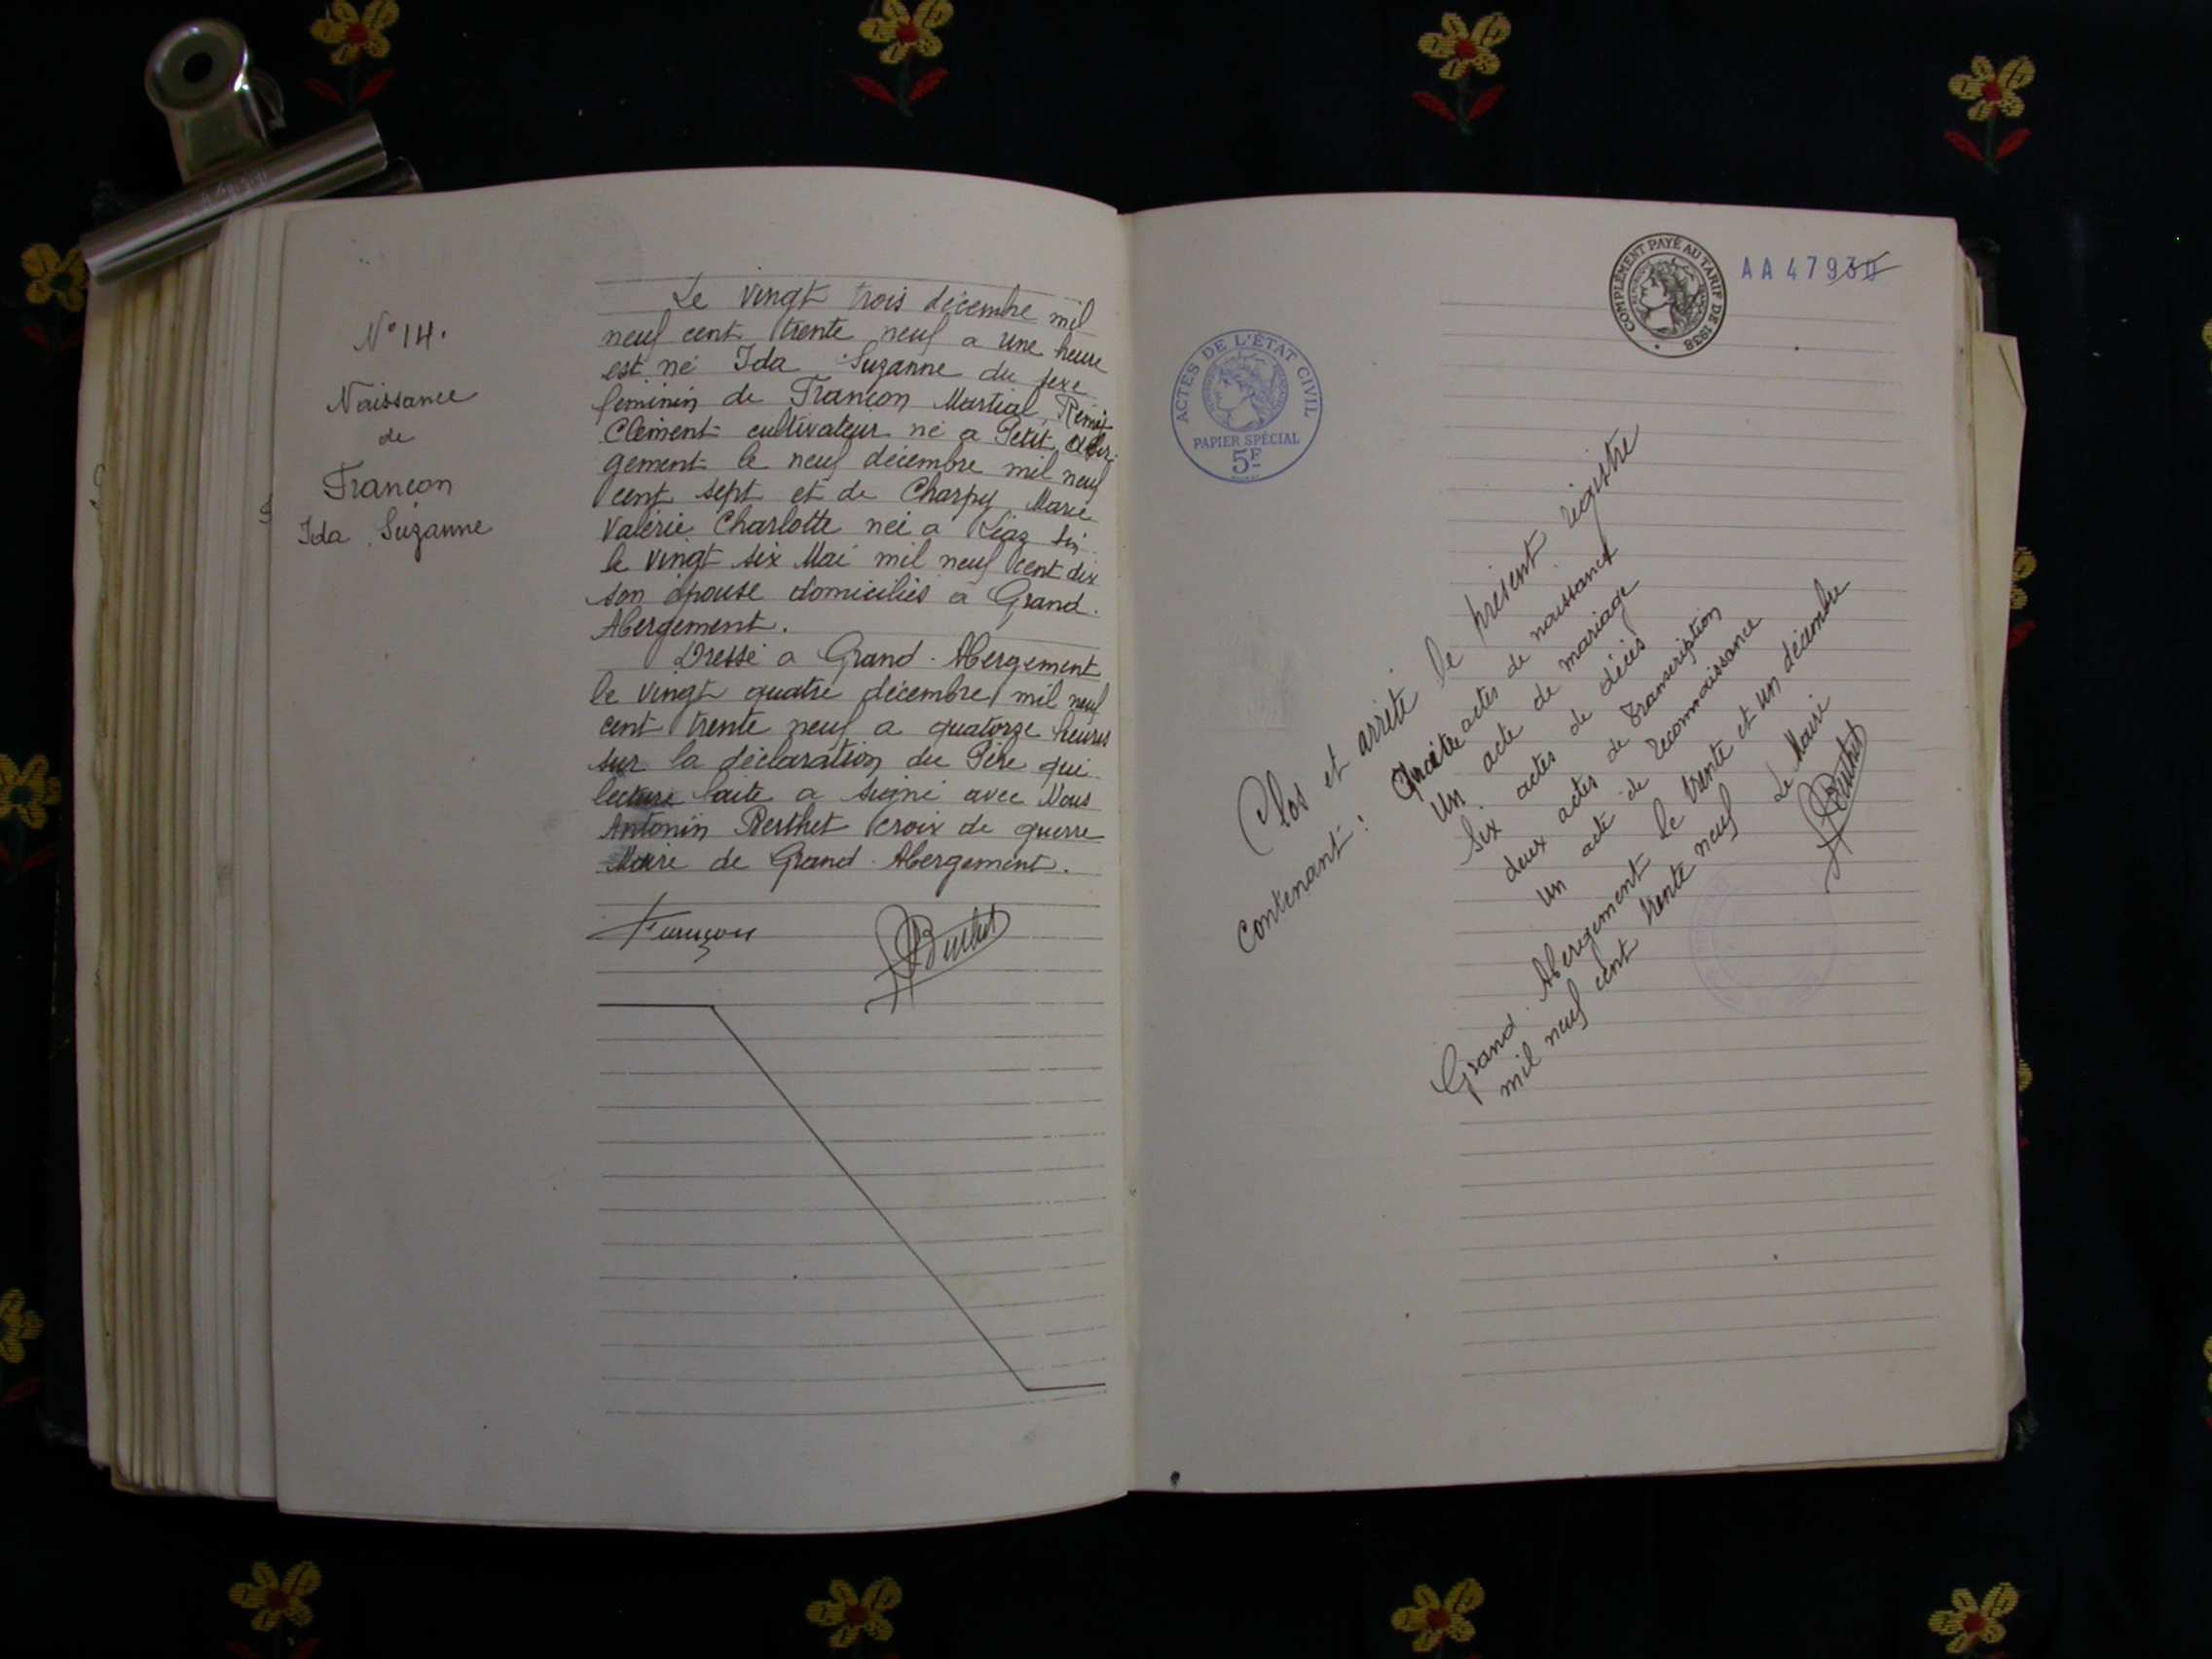 N° 14.
Naissance
de
Françon
Ida Suzanne
Le vingt trois décembre mil
neuf cent trente neuf a une heure
est né Ida Suzanne du sexe
féminin de Françon Martial, Remi
Clément cultivateur né a Petit Aber-
gement le neuf décembre mil neuf
cent sept et de Charpy Marie
Valérie Charlotte neé a
le vingt six Mai mil neuf cent dix
son épouse domiciliés a Grand.
Abergement.
Dressé a Grand-Abergement
le vingt quatre décembre mil neuf
cent trente neuf a quatorze heures
sur la déclaration du Père qui
lecture faite a signé avec Nous
Antonin Berthet croix de guerre
Maire de Grand-Abergement.
Françon
Berthet
ACTES DE L'ÉTAT CIVIL
PAPIER SPÉCIAL
5F
COMPLÉMENT PAYÉ AU TARIF DE 1938
AA 47930
Clos et arrêté le présent régistre
Contenant : Quatre actes de naissances
Un acte de mariage
Six actes de décès
deux actes de transcription
Un acte de reconnaissance
Grand. Abergement le trente et un décembre
mil neuf cent trente neuf
Le Maire
Berthet